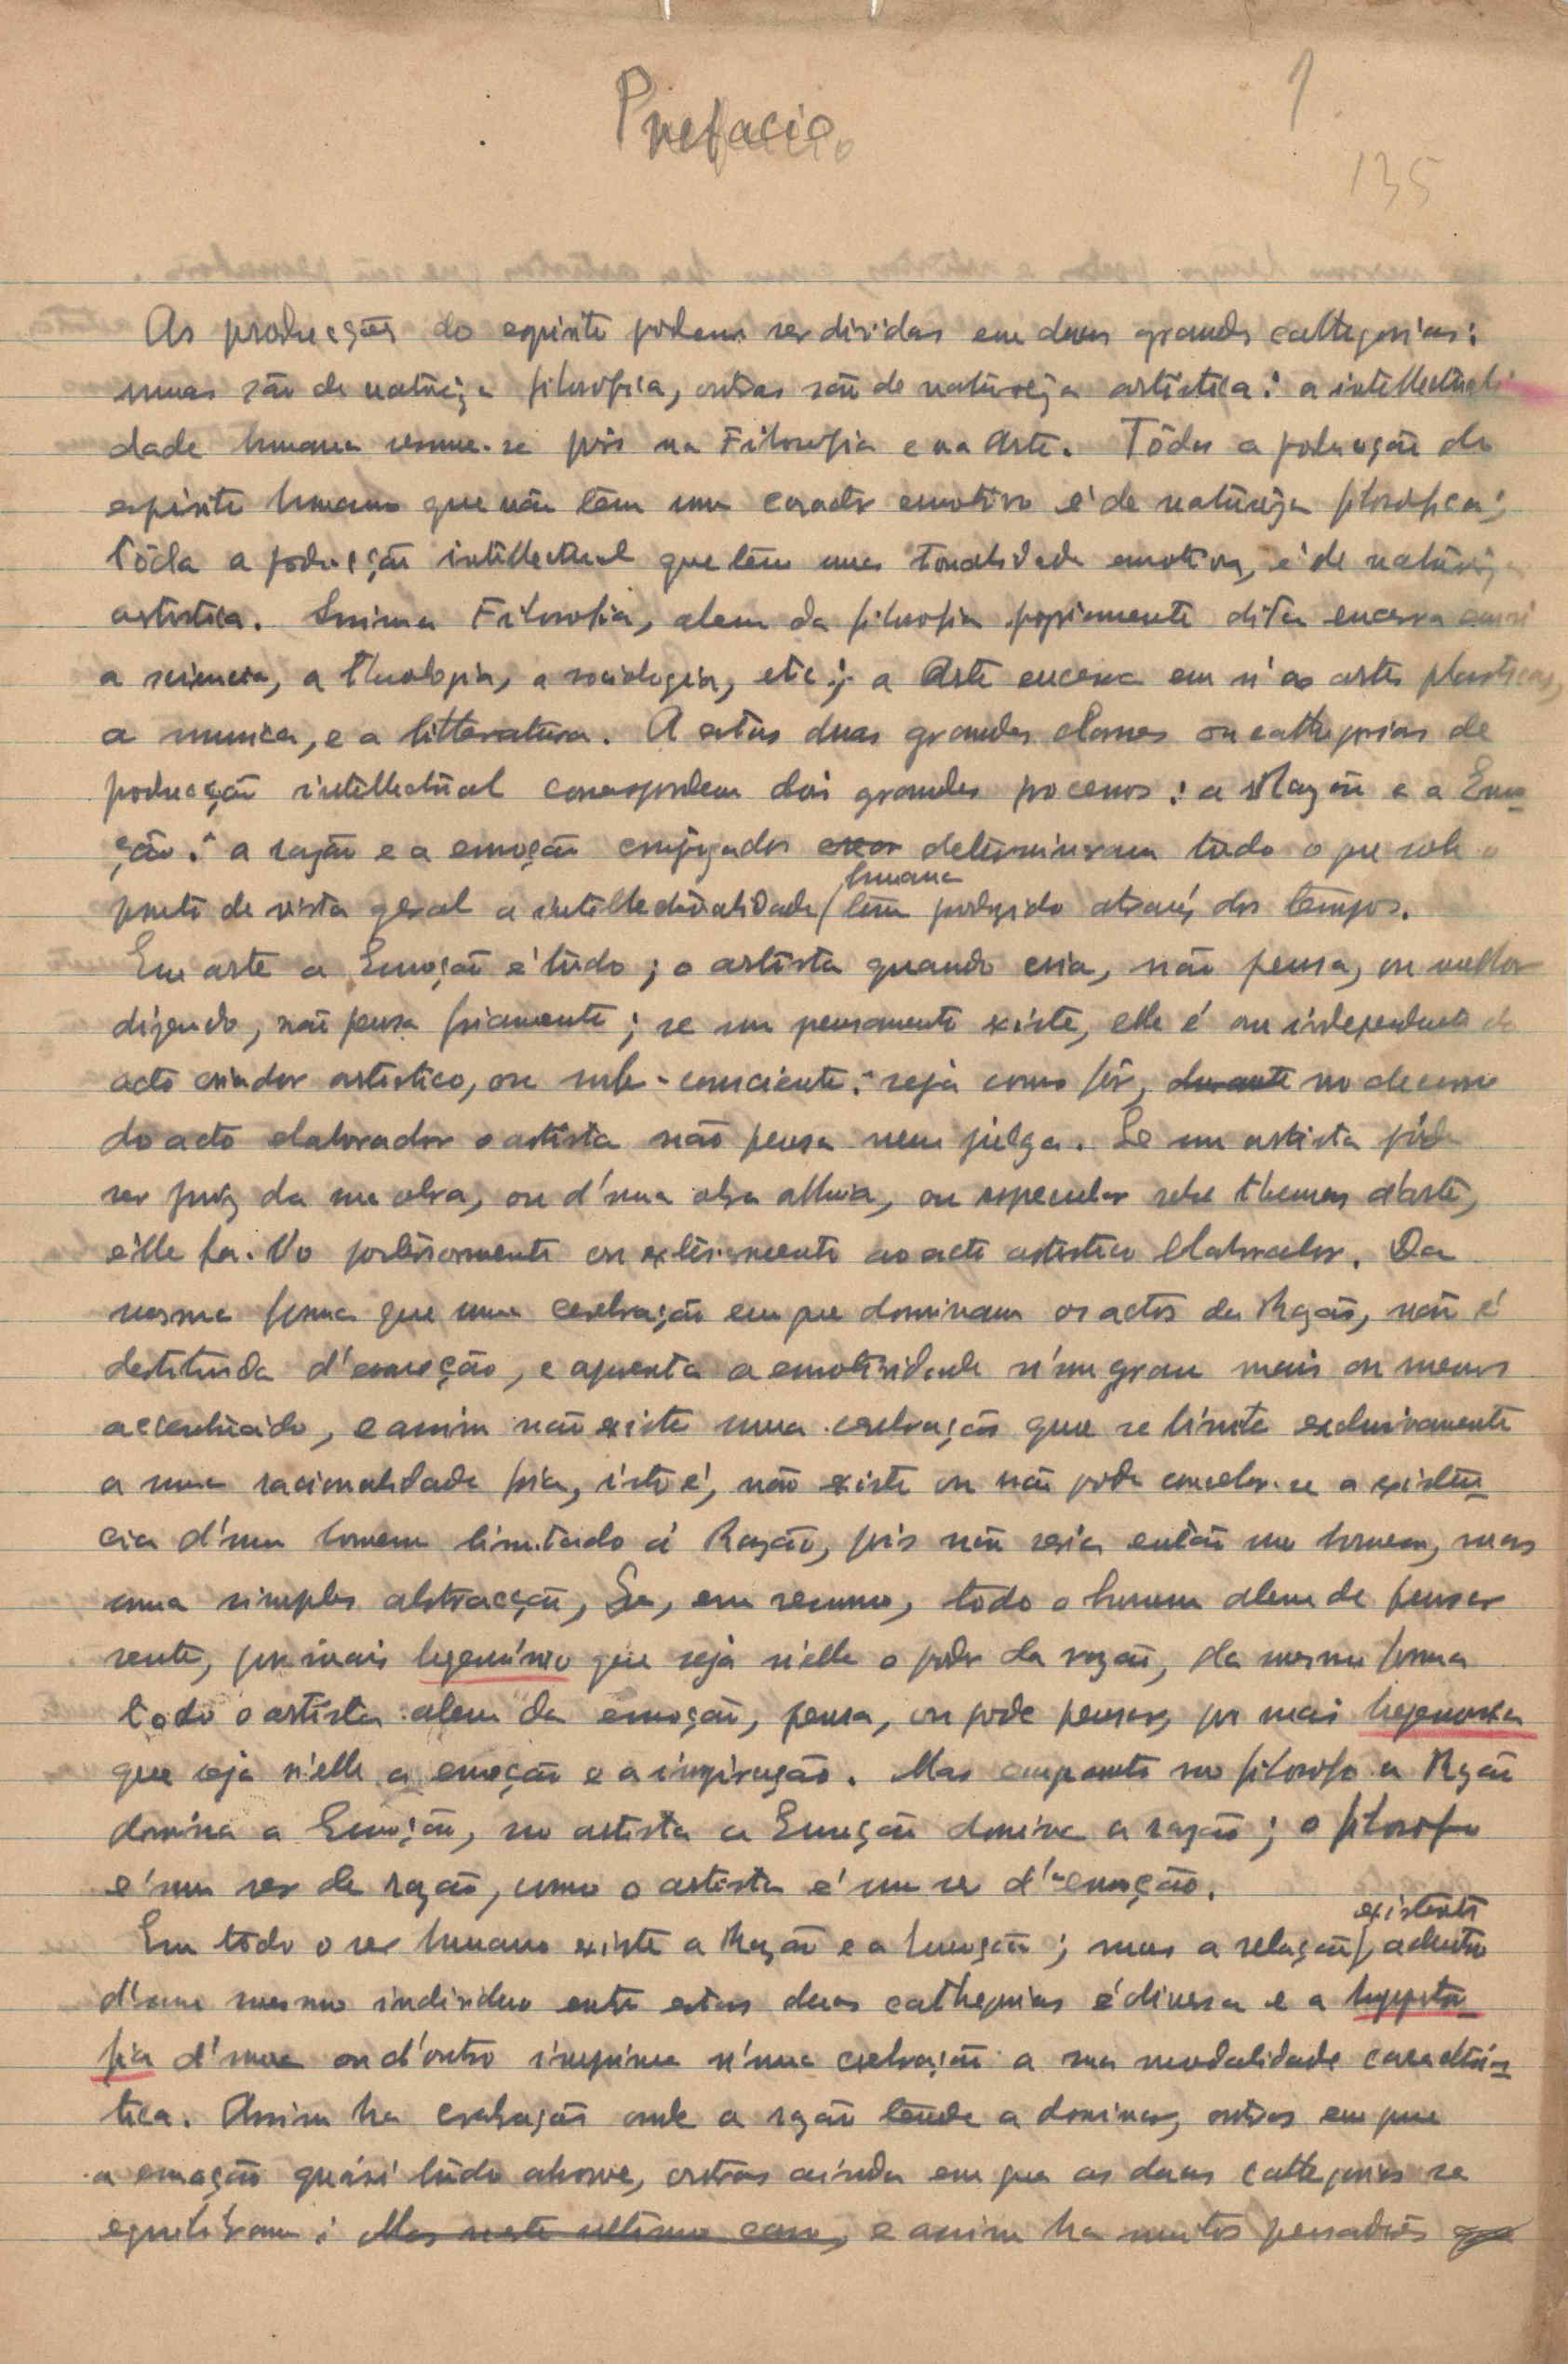 Prefacio
1
135
As producções do espirito pódem ser dividas em duas grandes cathegorias:
umas são de natureza filosofica, outras são de natureza artistica: a intellectuali
dade humana resume-se pois na Filosofia e na Arte. Tôda a producção do
espirito humano que não têm um caracter emotivo é de natureza filosofica;
tôda a producção intellectual que têm uma tonalidade emotiva, é de natureza
artistica. Filosofia, alem da filosofia propriamente dita encerra em si
a sciencia, a theologia, a sociologia, etc; a Arte encerra em si as artes plasticas,
a musica, e a litteratura. A estas duas grandes classes ou cathegorias de
producção intellectual correspondem dois grandes processos: a Razão e a Emo-
ção: a razão e a emoção conjugadas determinaram tudo o que sob o
ponto de vista geral a intellectualidade humana têm produzido através dos tempos.
Em arte a Emoção é tudo; o artista quando cria, não pensa, ou melhor
dizendo, não pensa friamente; se um pensamento existe, elle é ou independente do
acto criador artistico, ou sub-consciente: seja como fôr, durante no decurso
do acto elaborador o artista não pensa nem julga. Se um artista póde
ser juiz da sua obra, ou d'uma obra alheia, ou especular sobre themas d'arte,
elle fa-lo posteriormente ou exteriormente ao acto artistico elaborador. Da
mesma forma que uma cerebração em que dominam os actos da Razão, não é
destituida d'emoção, e apresenta a emotividade n'um grau mais ou menos
accentuado, e assim não existe uma cerebração que se limite exclusivamente
a uma racionalidade fria, isto é, não existe ou não pode conceber-se a existên-
cia d'um homem limitado á Razão, pois não seria então um homem, mas
uma simples abstracção, Se, em resumo, todo o homem alem de pensar
sente, por mais hegemónico que seja n'elle o poder da razão, da mesma forma
todo o artista alem da emoção, pensa, ou pode pensar, por mais hegemonica
que seja n'elle a emoção e a inspiração. Mas emquanto no filosofo a Razão
domina a Emoção, no artista a Emoção domina a razão; o filosofo
é um ser de razão, como o artista é um ser d'emoção.
Em todo o ser humano existe a Razão e a Emoção; mas a relação existente, adentro
d'um mesmo individuo entre estas duas cathegorias é diversa e a hypertro-
fia d'uma ou d'outro imprime n'uma cerebração a sua modalidade caracterís-
tica. Assim ha cerebrações onde a razão tende a dominar, outras em que
a emoção quási tudo absorve, outras ainda em que as duas cathegorias se
equilibram; Mas neste ultimo caso, e assim ha muitos pensadores que